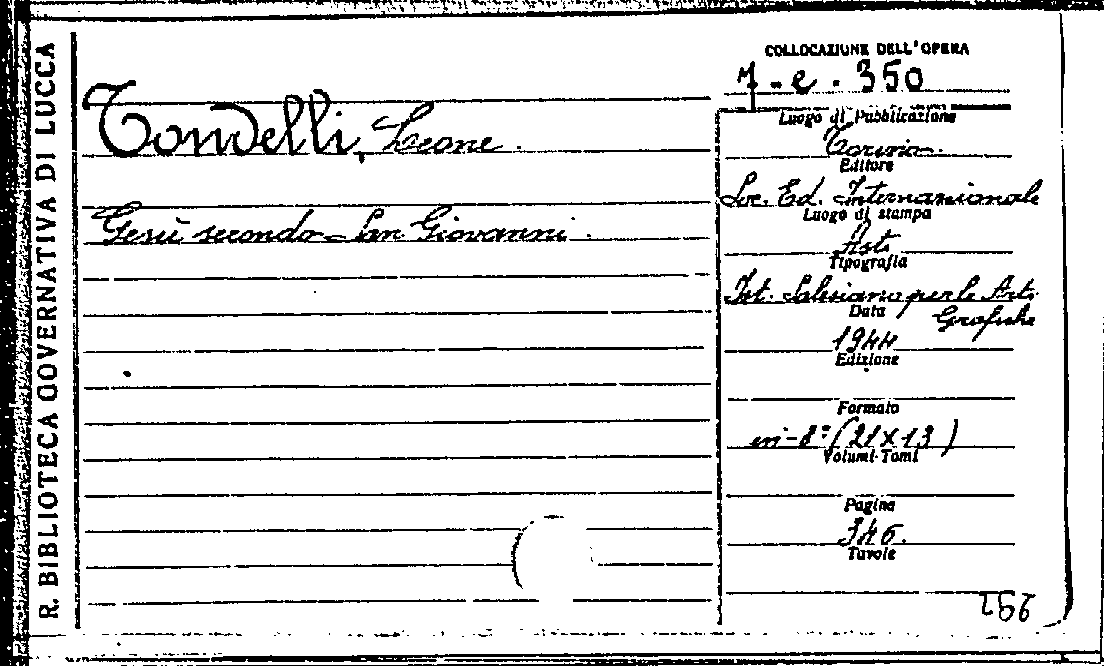 R. BIBLIOTECA GOVERNATIVA DI LUCCA
Tondelli, Leone.
Gesù secondo San Giovanni.
COLLOCAZIONE DELL'OPERA
7-e-350
Luogo di Pubblicazione
Torino.
Editore
Soc. Ed. Internazionale
Luogo di stampa
Asti
Tipografia
Ist. Salesiano per le Arti
Grafiche
Data
1944
Edizione
Formato
in-8º (21x13)
Volumi-Tomi
Pagine
346.
Tavole